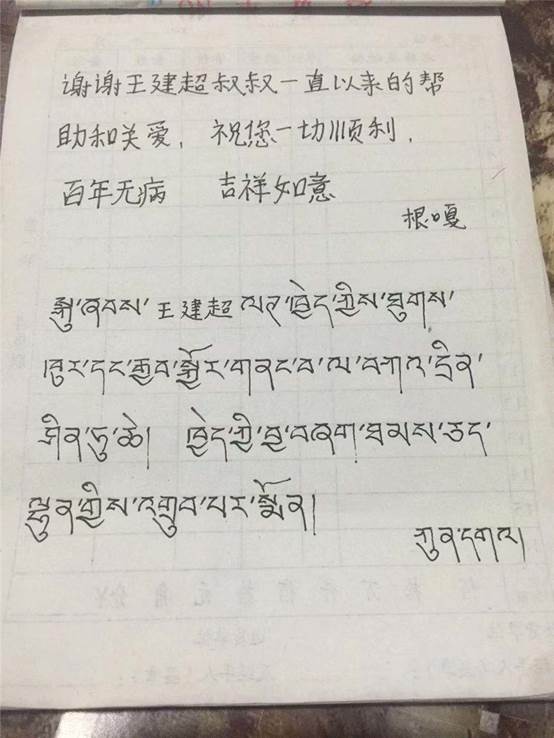 谢谢王建超叔叔一直以来的帮
助和关爱，祝您一切顺利，
百年无病 吉祥如意
根嘎
སྐུ་ཞབས་王建超ལགས་ཁྱེད་ཀྱིས་ཐུགས་
ཁུར་དང་རྒྱབ་སྐྱོར་གནང་བ་ལ་བཀའ་དྲིན་
ཤིན་ཏུ་ཆེ། ཁྱེད་ཀྱི་བྱ་བཞག་ཐམས་ཅད་
ལྷུན་གྱིས་འགྲུབ་པར་སྨོན།
ཀུན་དགའ།